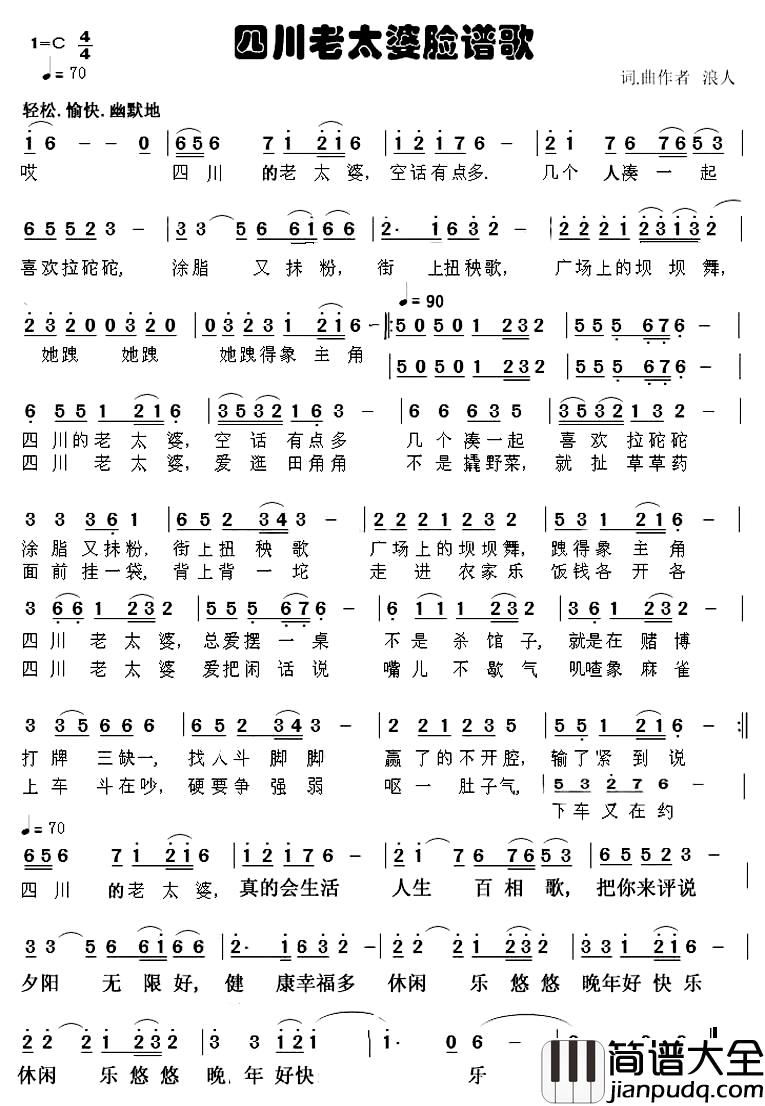 四川老太婆脸谱歌
1=C 4/4
♩=70
词.曲作者 浪人
轻松.愉快.幽默地
i 6 - - 0 | 6 5 6 7 i 2 i 6 | i 2 i 7 6 - | 2 i 7 6 7 6 5 3 |
哎 四 川 的老 太 婆, 空话有点多. 几个 人凑 一 起
6 5 5 2 3 - | 3 3 5 6 6 i 6 6 | 2· i 6 3 2 - | 2 2 2 i 2 3 i 3 2 |
喜欢拉砣砣, 涂脂 又 抹 粉, 街 上扭秧歌, 广场上的坝 坝 舞,
♩=90
2 3 2 0 0 3 2 0 | 0 3 2 3 i 2 i 6 - |: 5 0 5 0 1 2 3 2 | 5 5 5 6 7 6 - |
她跩 她跩 她跩得象 主 角
5 0 5 0 1 2 3 2 | 5 5 5 6 7 6 - |
6 5 5 1 2 1 6 | 3 5 3 2 1 6 - | 6 6 6 3 5 | 3 5 3 2 1 3 2 |
四 川的 老 太 婆, 空 话 有点多 几 个 凑一起 喜 欢 拉砣砣
四 川 老 太 婆, 爱 逛 田角角 不 是 撬野菜, 就 扯 草草药
3 3 3 3 6 1 | 6 5 5 2 3 4 3 - | 2 2 2 2 1 2 3 2 | 5 5 3 1 2 1 6 - |
涂 脂 又 抹粉, 街 上扭 秧 歌 广 场上的坝坝舞, 跩得象 主 角
面 前 挂一袋, 背 上背 一 坨 走 进 农家乐 饭钱各 开 各
3 6 6 1 2 3 2 | 5 5 5 6 7 6 - | 6 1 1 1 2 3 2 | 5 5 5 6 6 - |
四 川 老 太 婆, 总爱摆 一 桌 不 是 杀 馆 子, 就是在 赌 博
四 川 老 太 婆 爱把闲 话 说 嘴 儿 不 歇 气 叽喳象 麻 雀
3 3 5 6 6 6 | 5 5 2 3 4 3 - | 2 2 2 1 2 3 5 | 5 5 1 2 1 6 - :|
打 牌 三缺一, 找人斗 脚 脚 赢 了的 不开腔, 输了紧 到 说
上 车 斗在吵, 硬要争 强 弱 呕 一 肚子气,
5 3 2 7 6 - |
下车又在约
♩=70
6 5 6 7 i 2 i 6 | i 2 i 7 6 - | 2 2 i 7 6 7 6 5 3 | 6 5 5 2 3 - |
四 川 的老 太 婆, 真的会生活 人生 百 相 歌, 把你来评说
3 3 5 6 6 i 6 6 | 2· i 6 3 2 - | 2 2 i 2 2 3 2 | 2 2 i 6 5 6 - |
夕阳 无 限 好, 健 康幸福多 休闲 乐 悠 悠 晚年好 快 乐
2 2 i 2 2 3 2 | 2 2 i 2 i - | i· 0 6 - |
休闲 乐 悠 悠 晚, 年 好快 乐
简谱大全
jianpudq.com